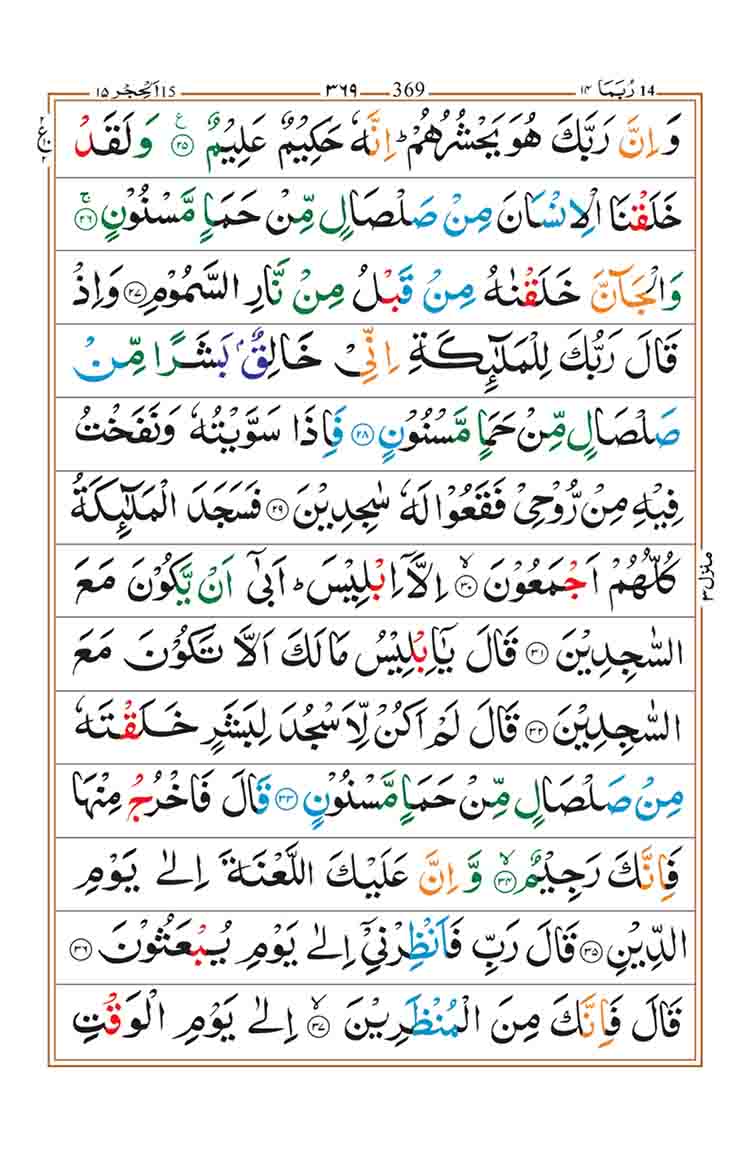 14 رُبَمَا ١٤ 369 ٣٦٩ 15 اَلْحِجْر ١٥
وَ اِنَّ رَبَّكَ هُوَ یَحْشُرُهُمْ ؕ اِنَّهٗ حَكِیْمٌ عَلِیْمٌ ﴿۲۵﴾ ع وَ لَقَدْ
خَلَقْنَا الْاِنْسَانَ مِنْ صَلْصَالٍ مِّنْ حَمَاٍ مَّسْنُوْنٍ ﴿۲۶﴾ ۚ
وَ الْجَآنَّ خَلَقْنٰهُ مِنْ قَبْلُ مِنْ نَّارِ السَّمُوْمِ ﴿۲۷﴾ وَ اِذْ
قَالَ رَبُّكَ لِلْمَلٰٓىِٕكَةِ اِنِّیْ خَالِقٌۢ بَشَرًا مِّنْ
صَلْصَالٍ مِّنْ حَمَاٍ مَّسْنُوْنٍ ﴿۲۸﴾ فَاِذَا سَوَّیْتُهٗ وَ نَفَخْتُ
فِیْهِ مِنْ رُّوْحِیْ فَقَعُوْا لَهٗ سٰجِدِیْنَ ﴿۲۹﴾ فَسَجَدَ الْمَلٰٓىِٕكَةُ
كُلُّهُمْ اَجْمَعُوْنَ ﴿۳۰﴾ ۙ اِلَّاۤ اِبْلِیْسَ ؕ اَبٰۤی اَنْ یَّكُوْنَ مَعَ
السّٰجِدِیْنَ ﴿۳۱﴾ قَالَ یٰۤاِبْلِیْسُ مَا لَكَ اَلَّا تَكُوْنَ مَعَ
السّٰجِدِیْنَ ﴿۳۲﴾ قَالَ لَمْ اَكُنْ لِّاَسْجُدَ لِبَشَرٍ خَلَقْتَهٗ
مِنْ صَلْصَالٍ مِّنْ حَمَاٍ مَّسْنُوْنٍ ﴿۳۳﴾ قَالَ فَاخْرُجْ مِنْهَا
فَاِنَّكَ رَجِیْمٌ ﴿۳۴﴾ ۙ وَّ اِنَّ عَلَیْكَ اللَّعْنَةَ اِلٰی یَوْمِ
الدِّیْنِ ﴿۳۵﴾ قَالَ رَبِّ فَاَنْظِرْنِیْۤ اِلٰی یَوْمِ یُبْعَثُوْنَ ﴿۳۶﴾
قَالَ فَاِنَّكَ مِنَ الْمُنْظَرِیْنَ ﴿۳۷﴾ ۙ اِلٰی یَوْمِ الْوَقْتِ
منزل ٣